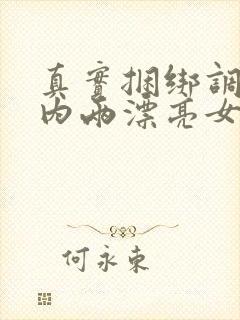 真實捆綁調
內兩漂亮女
何永東